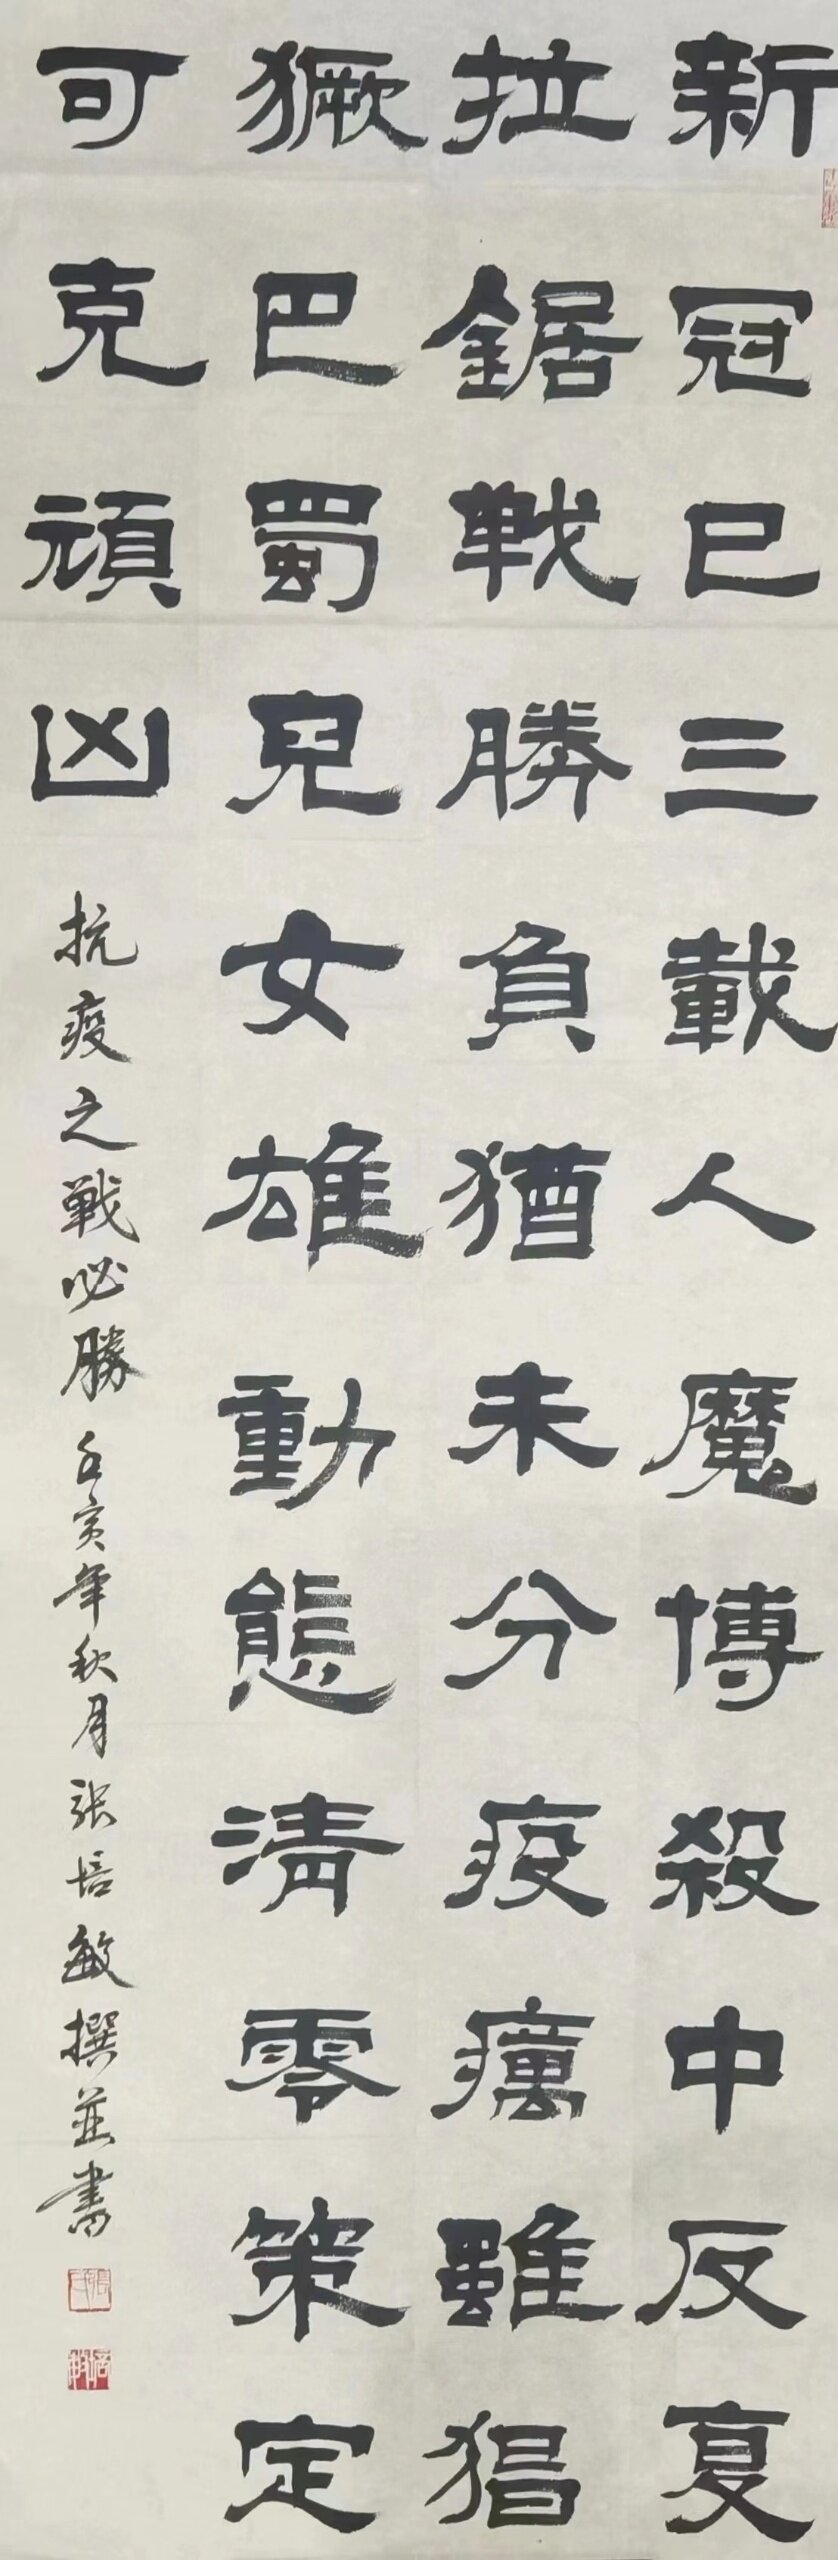 新冠已三載人魔博殺中反复
拉鋸戰勝負猶未分疫癘雖猖
獗巴蜀兒女雄動態清零策定
可克頑凶
抗疫之戰必勝 壬寅年秋月張培敏撰並書